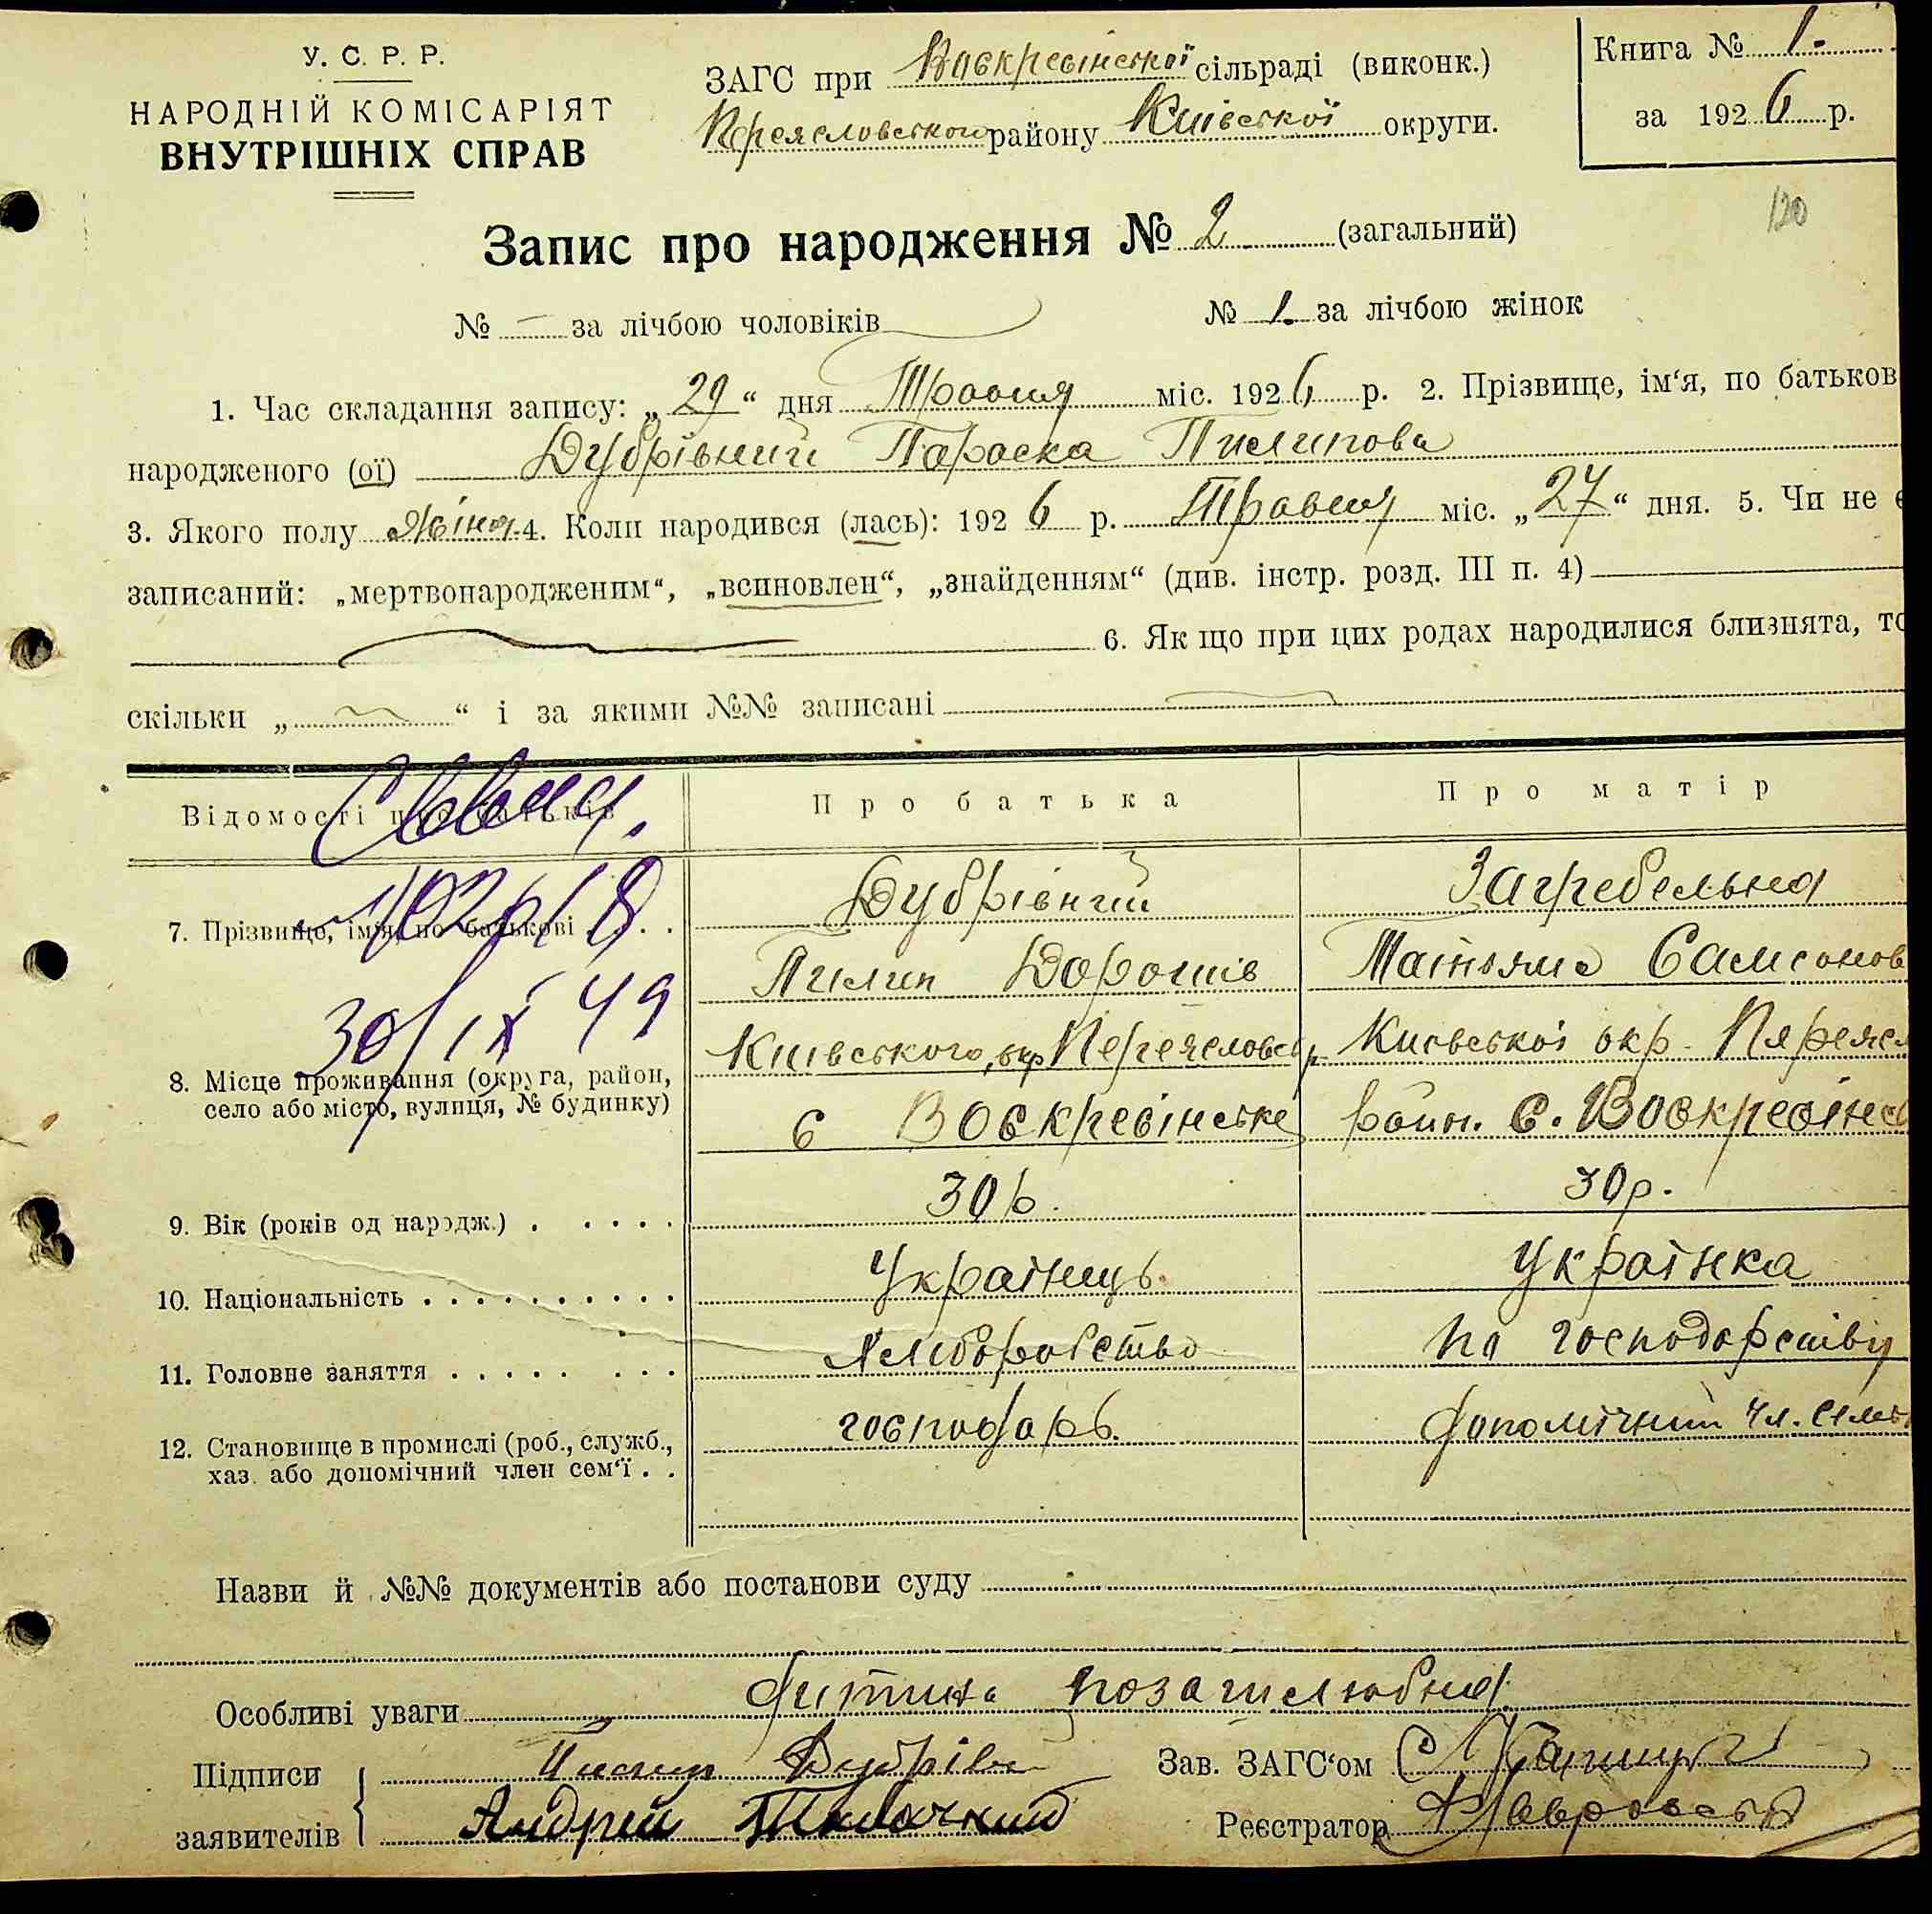 У. С. Р. Р.
НАРОДНІЙ КОМІСАРІЯТ
ВНУТРІШНІХ СПРАВ
ЗАГС при Воскресінської сільраді (виконк.)
Переяславського району Київської округи.
Книга № 1.
за 1926 р.
120
Запис про народження № 2 (загальний)
№ — за лічбою чоловіків № 1. за лічбою жінок
1. Час складання запису: „29“ дня Травня міс. 1926 р. 2. Прізвище, ім‘я, по батьков
народженого (ої) Дубрівний Параска Пилипова
3. Якого полу жіноч. 4. Коли народився (лась): 1926 р. Травня міс. „27“ дня. 5. Чи не є
записаний: „мертвонародженим“, „всиновлен“, „знайденням“ (див. інстр. розд. III п. 4)
6. Як що при цих родах народилися близнята, то
скільки „ “ і за якими №№ записані
Відомості про батьків Про батька Про матір
7. Прізвище, ім‘я, по батькові . . . Дубрівний Загребельна
Пилип Дорошів Татьяна Самсонов
30/IX 49
8. Місце проживання (округа, район, село або місто, вулиця, № будинку) Київського, окр Переяславськ р. Київської окр. Переясл
с Воскресінське район. с. Воскресінс
9. Вік (років од народж.) . . . . . 30 р. 30 р.
10. Національність . . . . . . . . . . Українць Українка
11. Головне заняття . . . . . . . . Хліборобство по господарстві
12. Становище в промислі (роб., служб., хаз. або допомічний член сем‘ї . . господарь. допомічний чл. сем
Назви й №№ документів або постанови суду
Особливі уваги дитина позашлюбна
Підписи заявителів
Пилип Дубрівн
Андрей
Зав. ЗАГС‘ом
Реєстратор